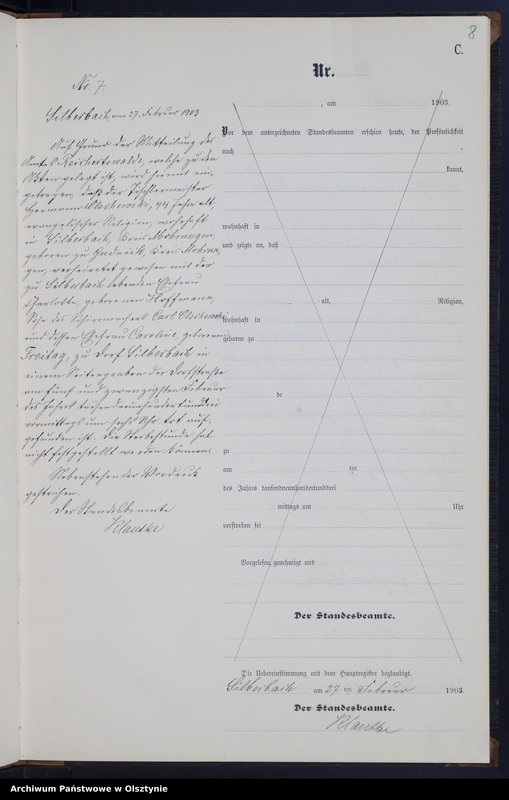 8
C.
Nr. 7.
Silberbach, am 27. Februar 1903
Auf Grund der Mitteilung des
Amtes Reichertswalde, welche zu den
Akten gelegt ist, wird hiermit ein-
getragen, daß der Tischlermeister
Hermann Olschewski, 44 Jahre alt,
evangelischer Religion, wohnhaft
in Silberbach, Kreis Mohrungen,
geboren zu Kreis Mohrun-
gen, verheiratet gewesen mit der
zu Silberbach lebenden Ehefrau
Charlotte, geborenen Hoffmann,
Sohn des Carl Olschewski
und dessen Ehefrau Caroline, geborenen
Freitag, zu Dorf Silberbach in
einem Seitengraben der Dorfstraße
am fünf und zwanzigsten Februar
des Jahres tausend neunhundert und drei
vormittags um sechs Uhr tot auf-
gefunden ist. Die Sterbestunde hat
nicht festgestellt werden können.
Nebenstehender Vordruck
gestrichen.
Der Standesbeamte
Klautke
Nr.
, am 1903.
Vor dem unterzeichneten Standesbeamten erschien heute, der Persönlichkeit
nach
kannt,
wohnhaft in
und zeigte an, daß
alt, Religion,
wohnhaft in
geboren zu
de
zu
am ten
des Jahres tausendneunhundertunddrei
mittags um Uhr
verstorben sei
Vorgelesen, genehmigt und
Der Standesbeamte.
Die Uebereinstimmung mit dem Hauptregister beglaubigt.
Silberbach am 27 ten Februar 1903.
Der Standesbeamte.
Klautke
Archiwum Państwowe w Olsztynie